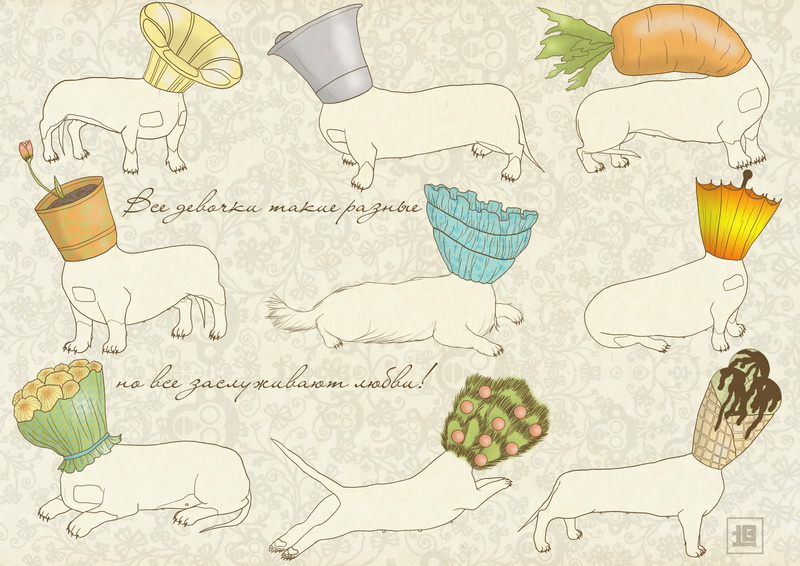 Все девочки такие разные
но все заслуживают любви!